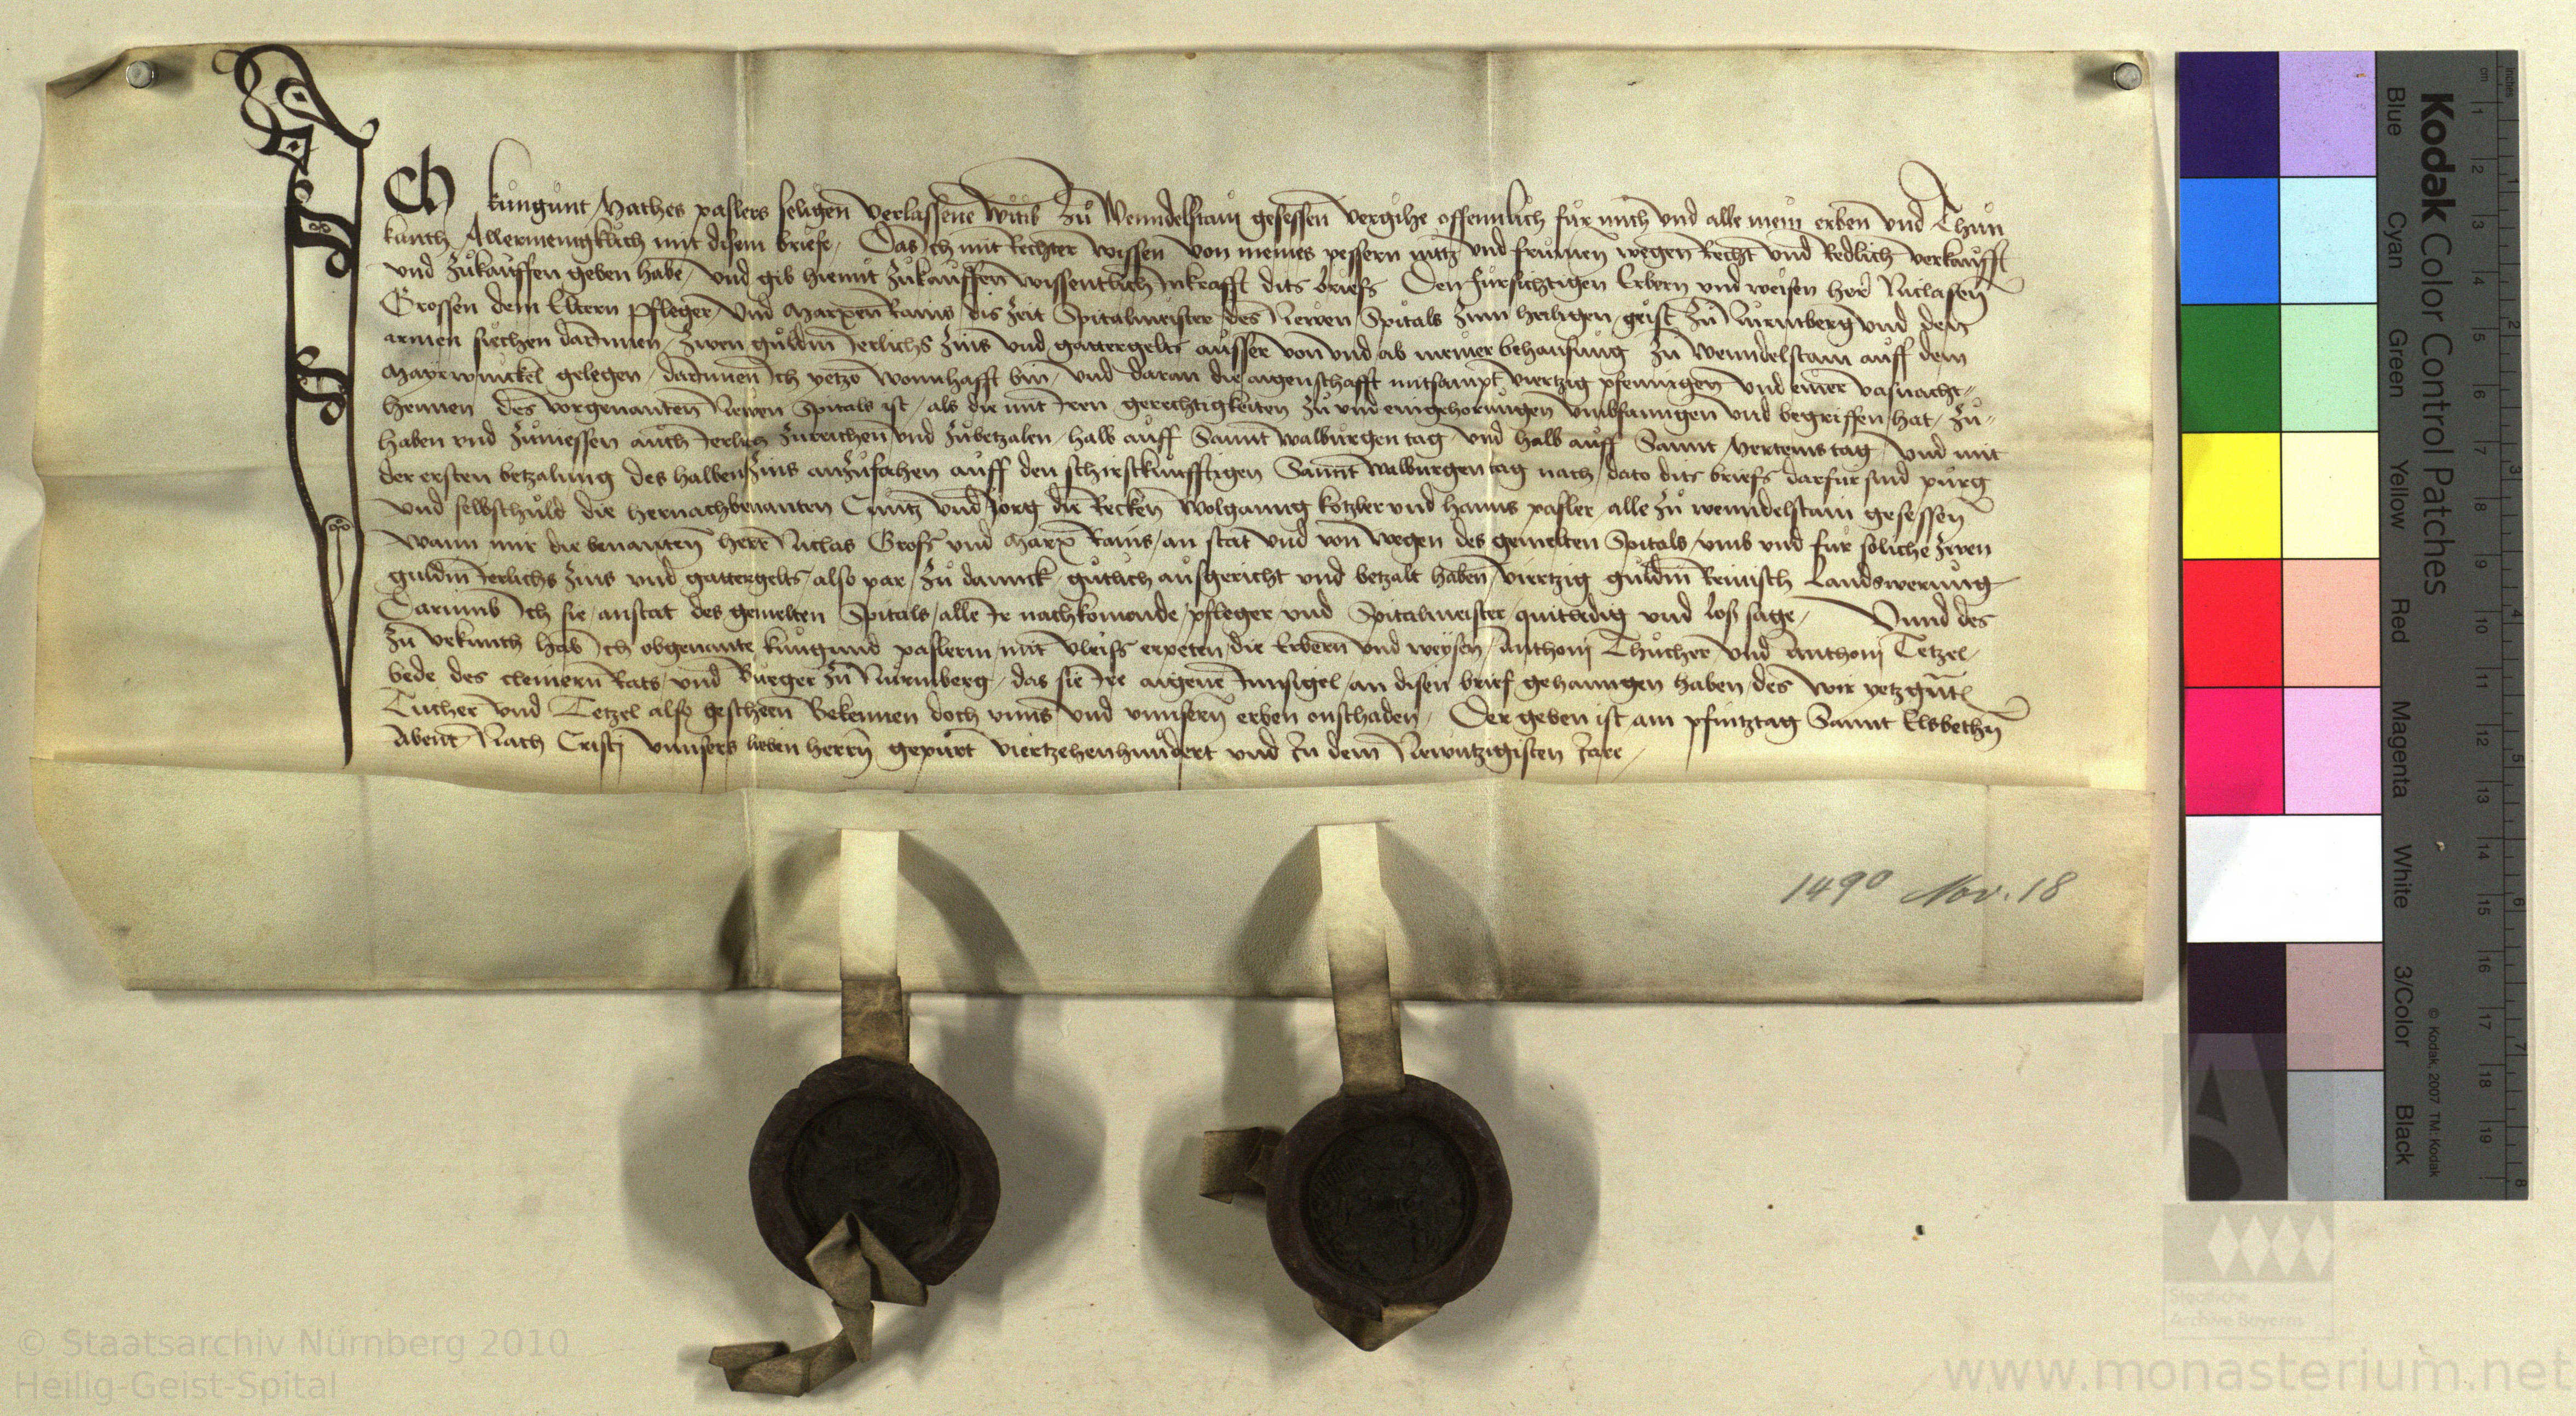 Ich kungunt Mathes paslers seligen verlassene witib zu Wenndelstain gesessen vergihe offennlich fur mich vnd alle mein erben vnd Thun
kunth Allermenigklich mit disem briefe / Das Ich mit Rechter wissen von meines pessern nutz vnd frumen wegen Recht vnd Redlich verkaufft
vnd zukauffen geben habe / vnd gib hiemit zukauffen wissentlich Inkrafft dits briefs Den fursichtigen Erbern vnd weisen herr Niclasen
Grossen dem Eltern Pfleger / vnd Marxen Rains / dis zeit Spitalmeister des Newen Spitals zum heiligen geist zu Nurmberg vnd den
armen siechen darInnen / zwen guldin Ierlichs zins vnd gattergelts ausser von vnd ab meiner behausung zu Wenndelstain auff dem
Mayrwinckel gelegen / darInnen Ich yetzo wonnhafft bin / vnd daran die aigenschafft mitsampt viertzig pfenningen vnd einer vasnacht=
hennen des vorgenanten Newen Spitals ist / als die mit Iren gerechtigkeiten zu vnd eingehorungen vmbfanngen vnd begriffen hat / zu=
haben vnd zuniessen auch Ierlich zureichen vnd zubetzalen / halb auff Sannt walburgen tag vnd halb auff Sannt Mertens tag / vnd mit
der ersten betzalung des halben zins anzufahen auff den schirstkunfftigen Sannt walburgen tag nach dato dits briefs darfur sind purg
vnd selbschuld die hernachbenanten Cuntz vnd Jorg die Recken Wolganng kotzler vnd hanns pasler / alle zu wenndelstain gesessen
Wann mir die benanten herr Niclas Gross vnd Marx Rains / an stat vnd von wegen des gemelten Spitals / vmb vnd fur soliche zwen
guldin Ierlichs zins vnd gattergelts / also par / zu dannck / gutlich ausgericht vnd betzalt haben / viertzig guldin Reinisch Landswerung
Darumb Ich sie / anstat des gemelten Spitals / alle Ir nachkomende / pfleger vnd Spitalmeister / quitledig vnd los sage / Vnnd des
zu vrkunth hab Ich obgenante kungund paslerin / mit vleiss erpeten / die Erbern vnd weysen / Anthoni Thucher vnd Anthoni Tetzel /
bede des cleinern Rats / vnd Burger zu Nurmberg / das sie Ire aigene Innsigel / an disen brief gehanngen haben / des wir yetzgnten
Tucher vnd Tetzel also gescheen Bekennen doch vnns vnd vnnsern erben onschaden / Der geben ist am pfintztag Sannt Elsbethn
Abent Nach Cristi vnnsers lieben herrn gepurt viertzehenhundert vnd In dem Newntzigisten Jare /
1490 Nov. 18
Kodak Color Control Patches
Blue Cyan Green Yellow Red Magenta White 3/Color Black
© Kodak, 2007 TM: Kodak
cm 1 2 3 4 5 6 7 8 9 10 11 12 13 14 15 16 17 18 19
inches 1 2 3 4 5 6 7 8
© Staatsarchiv Nürnberg 2010
Heilig-Geist-Spital
Staatliche
Archive Bayerns
www.monasterium.net